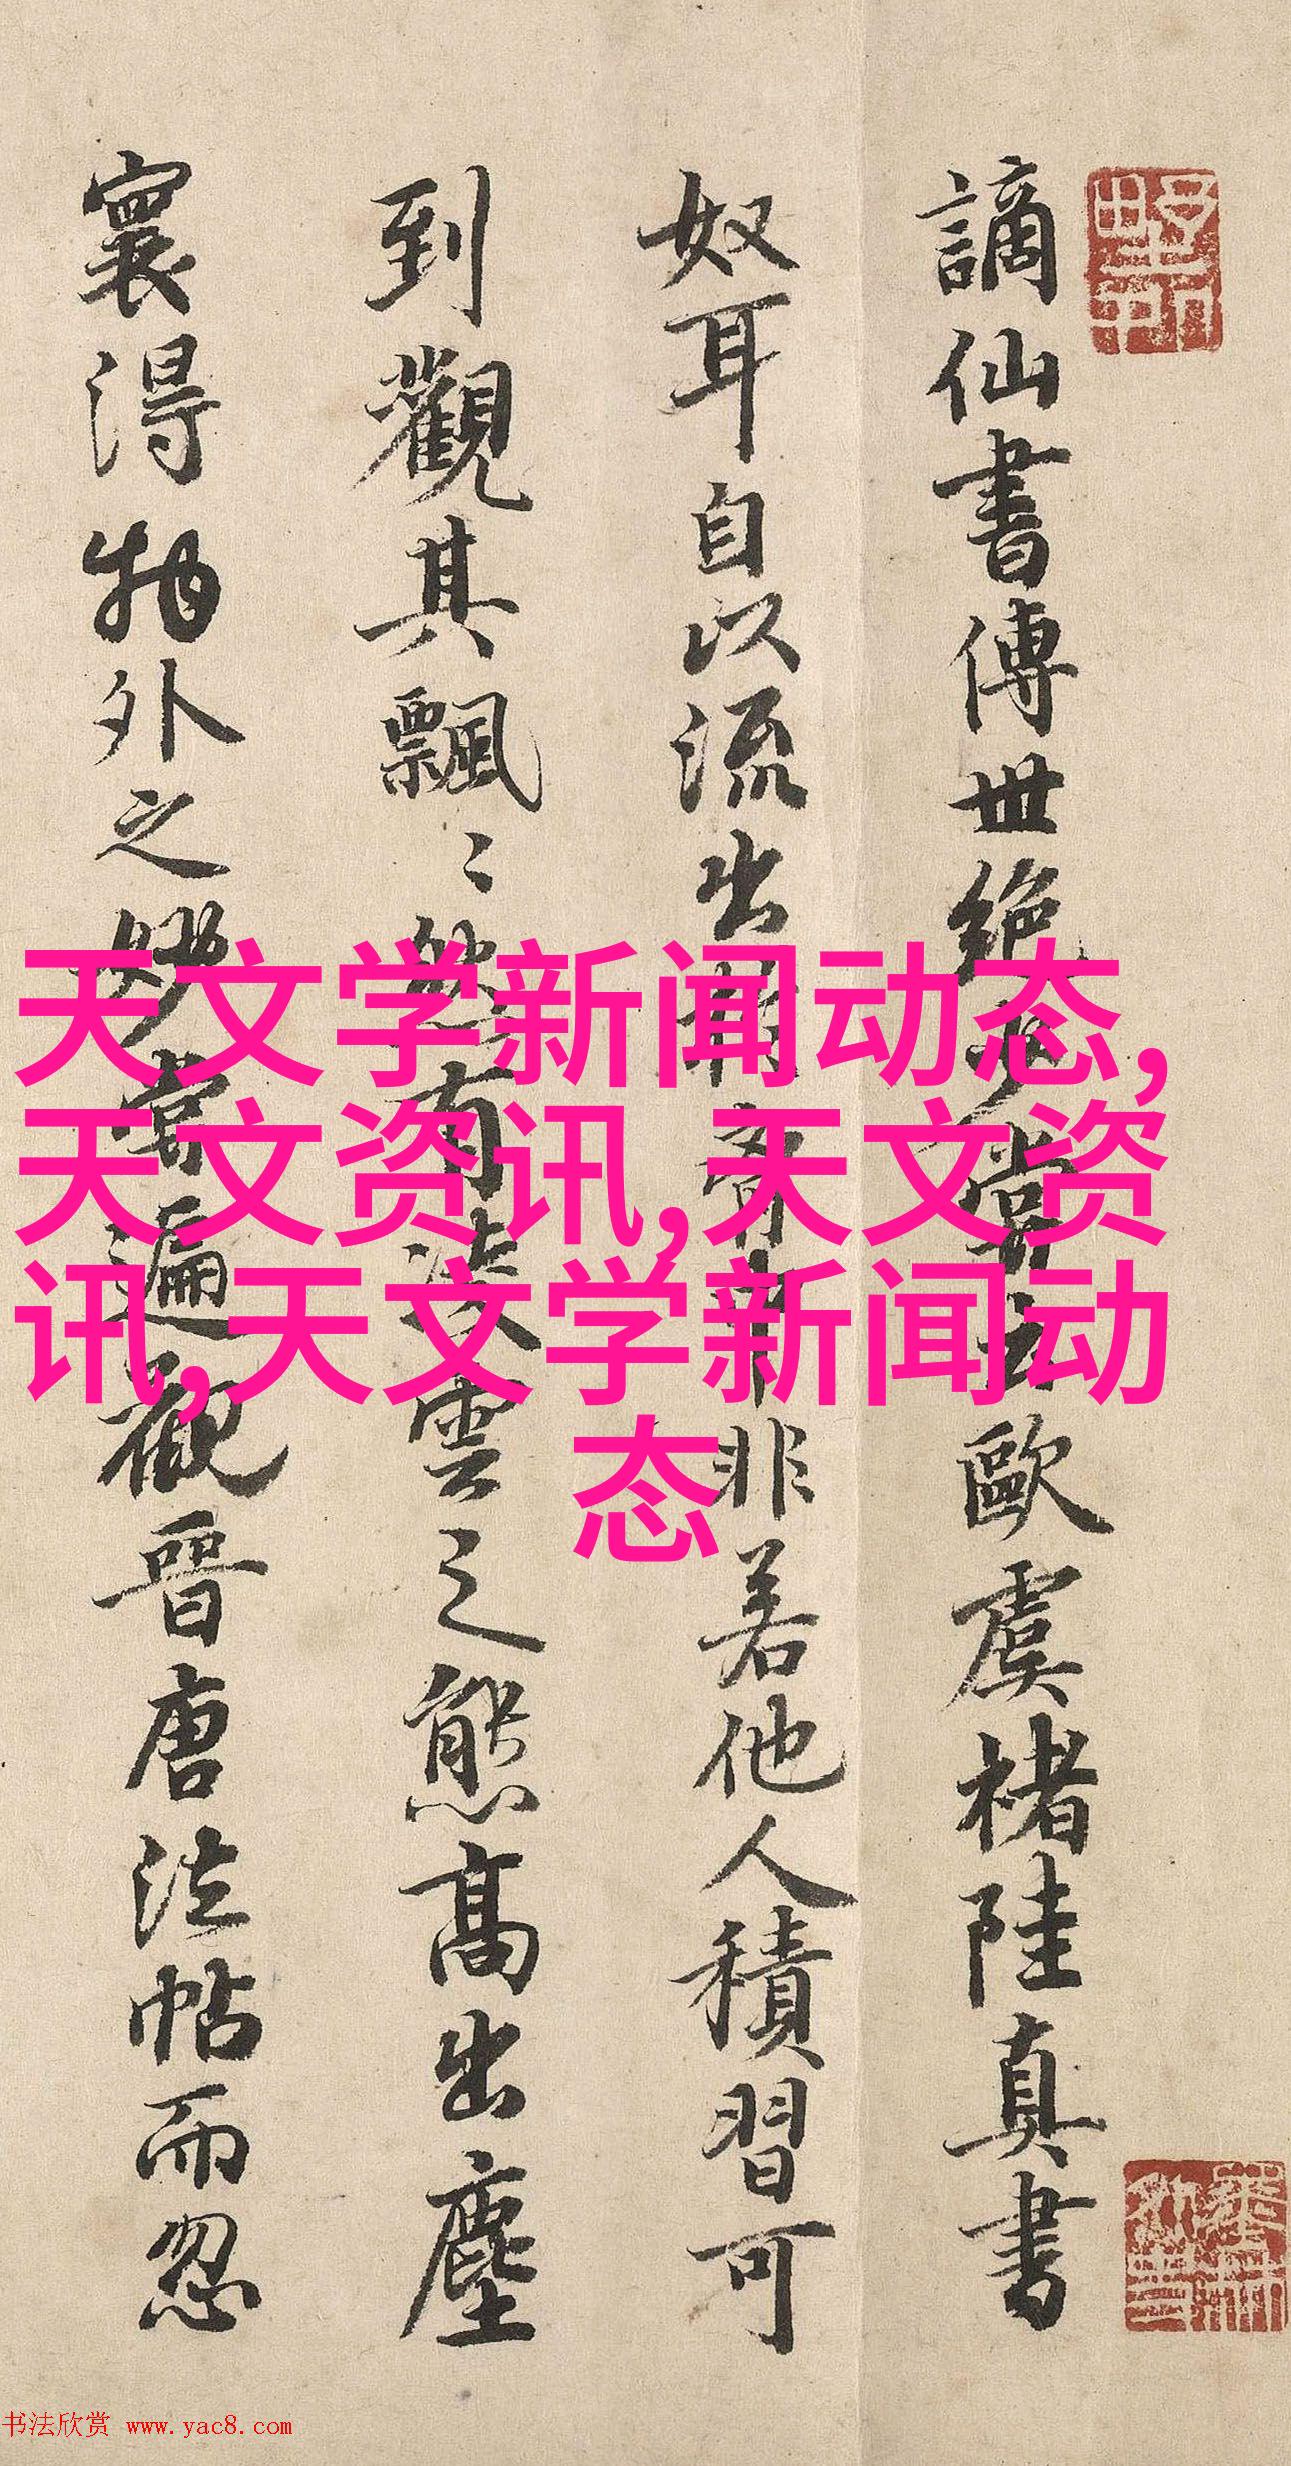 謫仙書傳世絕少嘗云歐虞褚陸真書
奴耳自以流出於胷中非若他人積習可
到觀其飄〻然有凌雲之態高出塵
寰得物外之妙嘗遍觀晉唐法帖而忽
天文学新闻动态,
天文资讯,天文资
讯,天文学新闻动
态
书法欣赏 www.yac8.com